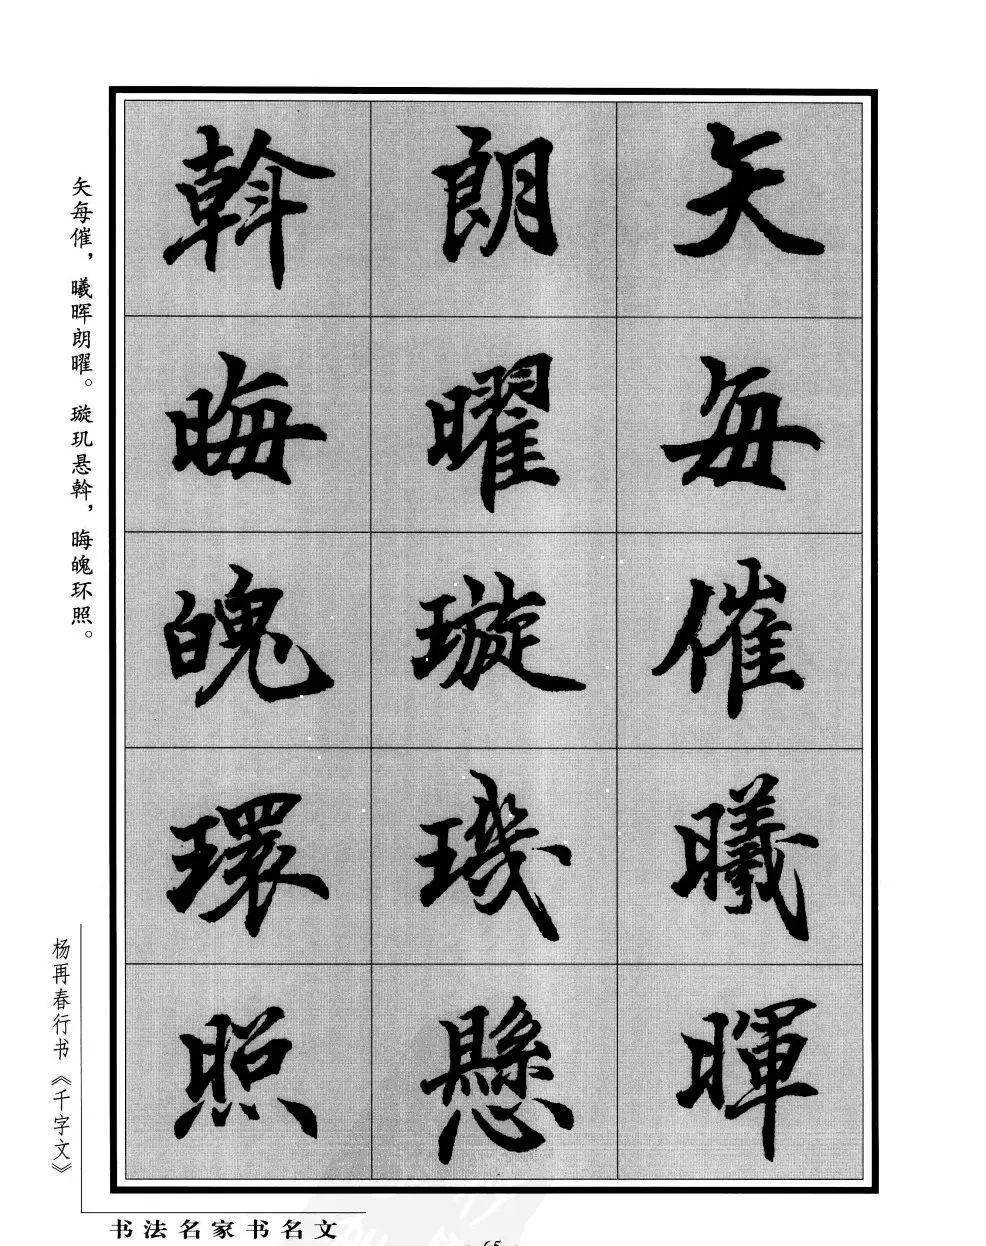 矢每催曦暉
朗曜璇璣懸
斡晦魄環照
矢每催，曦晖朗曜。璇玑悬斡，晦魄环照。
杨再春行书《千字文》
书法名家书名文